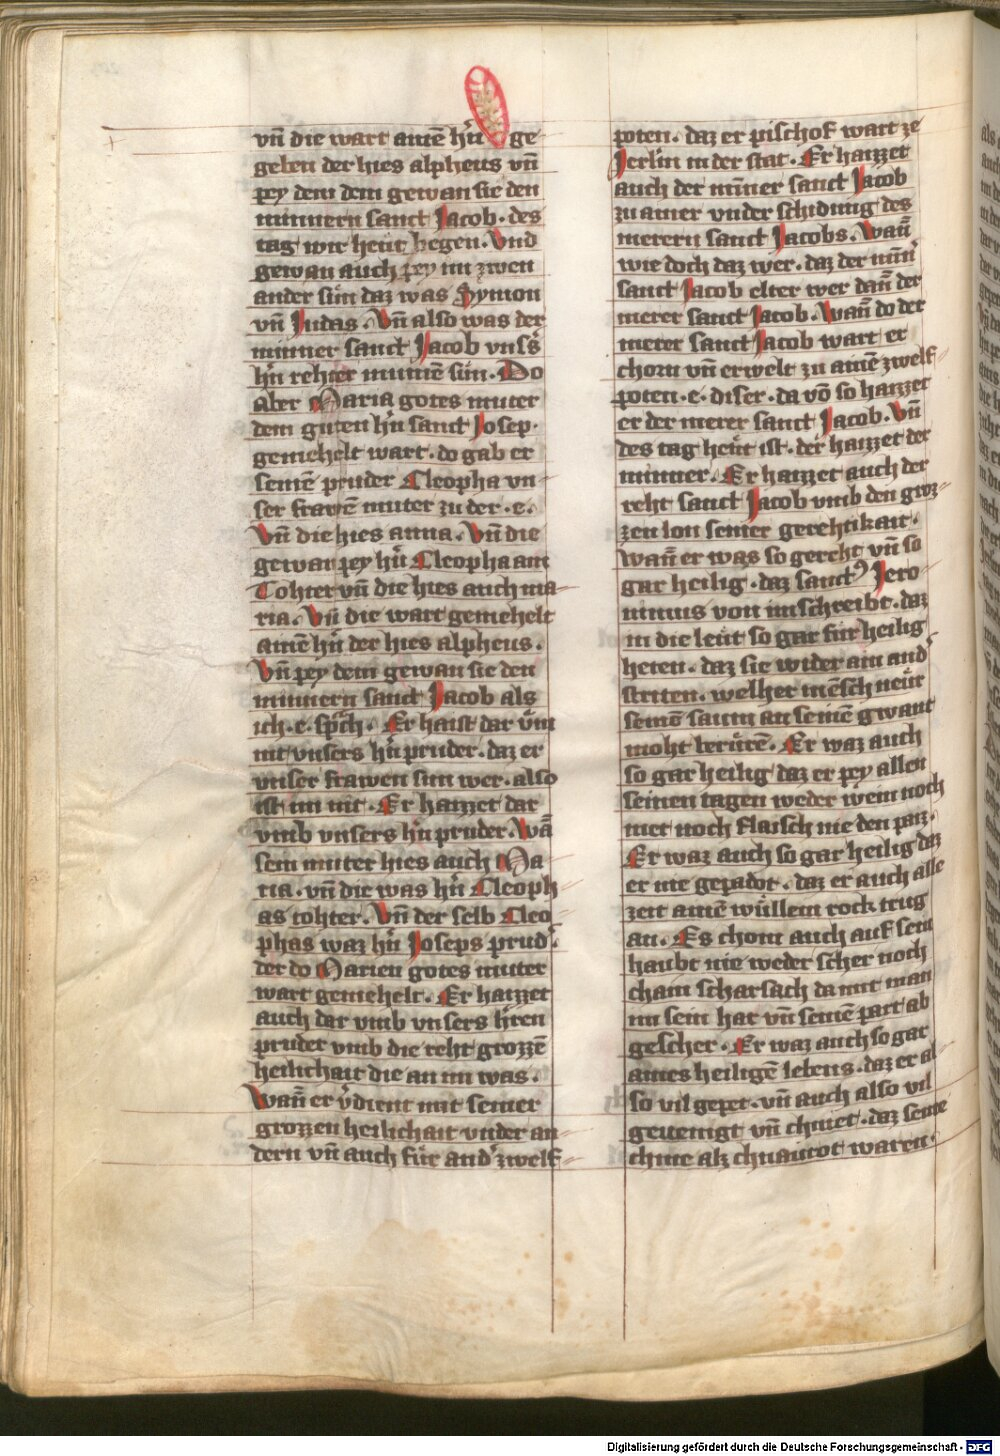 vñ die wart ainē hr̄n ge
geben der hies alpheus vñ
pey dem dem gewan sie den
minnern sanct Jacob. des
tag wir heut begen. Vnd
gewan auch pey im zwen
ander sün daz was Symon
vñ Judas. Vñ also was der
minner sanct Jacob vnsͤs
hr̄n rehter mumē sün. Do
aber Maria gotes muter
dem guten hr̄n sanct Josep.
gemehelt wart. do gab er
seinē pruder Cleopha vn-
ser frawē muter zu der .e.
Vñ die hies anna. Vñ die
gewan pey hr̄n Cleopha ain
Tohter vñ die hies auch ma-
ria. Vñ die wart gemehelt
ainē hr̄n der hies alpheus.
Vñ pey dem gewan sie den
minnern sanct Jacob als
ich .e. sprach. Er haist dar vm
nit vnsers hr̄n pruder. daz er
vnser frawen sun wer. also
ist im nit. Er haizzet dar
vmb vnsers hr̄n pruder. Wā
sein muter hies auch Ma-
ria. vñ die was hr̄n Cleoph
as tohter. Vñ der selb Cleo
phas waz hr̄n Joseps prud'.
der do Marien gotes muter
wart gemehelt. Er haizzet
auch dar vmb vnsers hr̄ren
pruder vmb die reht grozzē
heilichait die an im was.
Wañ er v'dient mit seiner
grozzen heilichait vnder an-
dern vñ auch für and' zwelf-
poten. daz er pischof wart ze
Jerl'in in der stat. Er haizzet
auch der miñer sanct Jacob
zu ainer vnder schidung des
merern sanct Jacobs. Wañ
wie doch daz wer. daz der miñ'
sanct Jacob elter wer dañ der
merer sanct Jacob. Wañ do der
merer sanct Jacob wart er
chorn vñ erwelt zu ainē zwelf-
poten .e. diser. da vō so haizzet
er der merer sanct Jacob. Vñ
des tag heut ist. der haizzet der
minner. Er haizzet auch der
reht sanct Jacob vmb den groz-
zen lon seiner gerehtikait.
Wañ er was so gereht vñ so
gar heilig. daz sanct' Jero-
nimus von im schreibt. daz
in die leut so gar für heilig
heten. daz sie wider ain and'
striten. welher mēsch neur
seinē saum an seinē gwant
moht berürē. Er waz auch
so gar heilig daz er pey allen
seinen tagen weder wein noch
met noch flaisch nie den paiz.
Er waz auch so gar heilig daz
er nie gepadot. daz er auch alle
zeit ainē wüllein rock trug
an. Es chom auch auf sein
haubt nie weder scher noch
chain scharsach da mit man
im sein har vñ seinē part ab
gescher. Er waz auch so gar
aines heiligē lebens. daz er al
so vil gepet. vñ auch also vil
geuenigt vñ chniet. daz seine
chnie alz chnaurot waren.
Digitalisierung gefördert durch die Deutsche Forschungsgemeinschaft - DFG